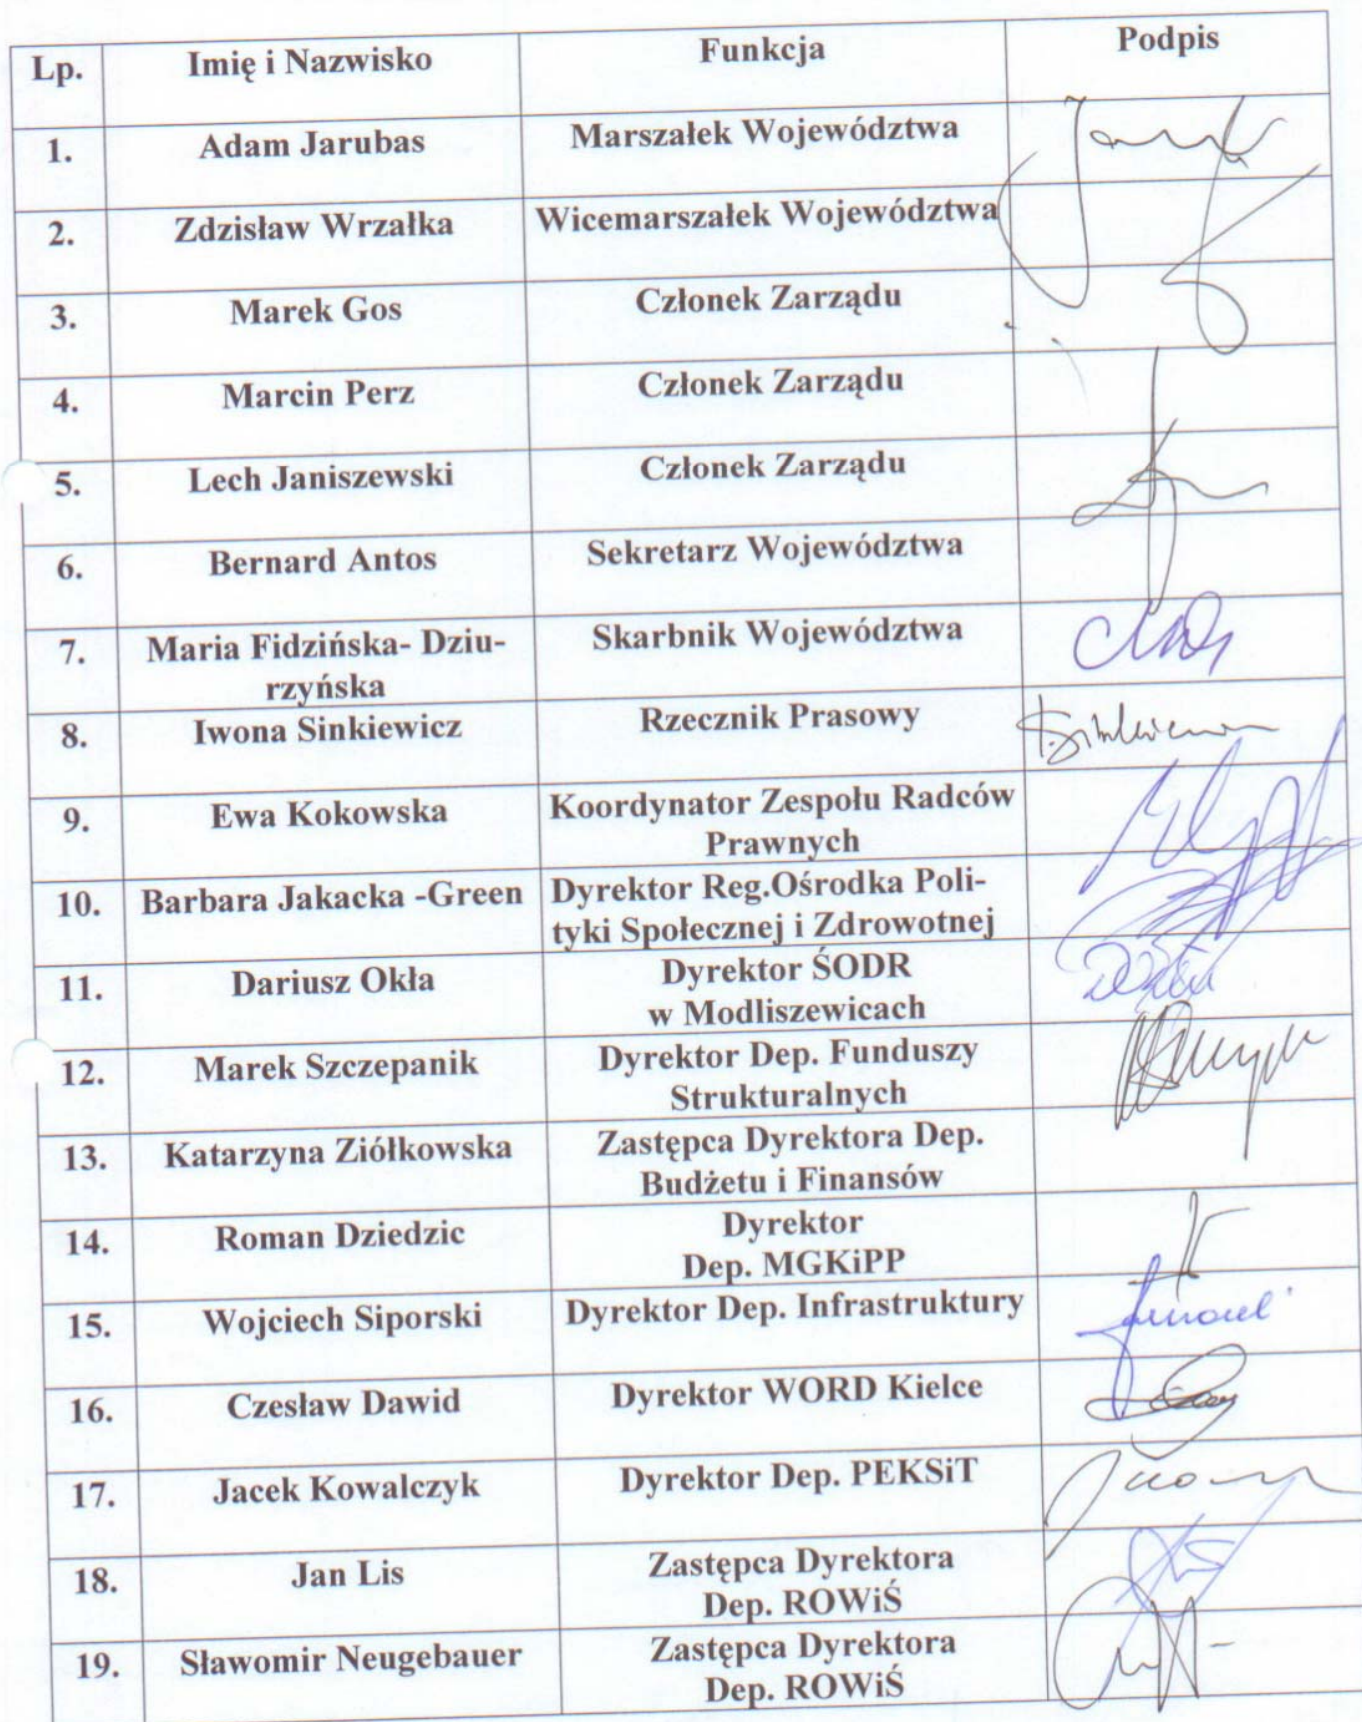 Lp. Imię i Nazwisko Funkcja Podpis
1. Adam Jarubas Marszałek Województwa
2. Zdzisław Wrzałka Wicemarszałek Województwa
3. Marek Gos Członek Zarządu
4. Marcin Perz Członek Zarządu
5. Lech Janiszewski Członek Zarządu
6. Bernard Antos Sekretarz Województwa
7. Maria Fidzińska- Dziu- Skarbnik Województwa
rzyńska
8. Iwona Sinkiewicz Rzecznik Prasowy
9. Ewa Kokowska Koordynator Zespołu Radców
Prawnych
10. Barbara Jakacka -Green Dyrektor Reg.Ośrodka Poli-
tyki Społecznej i Zdrowotnej
11. Dariusz Okła Dyrektor ŚODR
w Modliszewicach
12. Marek Szczepanik Dyrektor Dep. Funduszy
Strukturalnych
13. Katarzyna Ziółkowska Zastępca Dyrektora Dep.
Budżetu i Finansów
14. Roman Dziedzic Dyrektor
Dep. MGKiPP
15. Wojciech Siporski Dyrektor Dep. Infrastruktury
16. Czesław Dawid Dyrektor WORD Kielce
17. Jacek Kowalczyk Dyrektor Dep. PEKSiT
18. Jan Lis Zastępca Dyrektora
Dep. ROWiŚ
19. Sławomir Neugebauer Zastępca Dyrektora
Dep. ROWiŚ